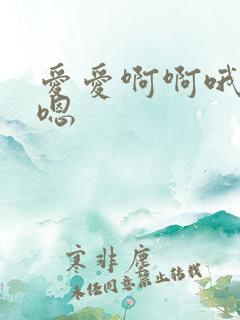 愛愛啊啊哦
嗯
寒非塵
未经同意禁止转载